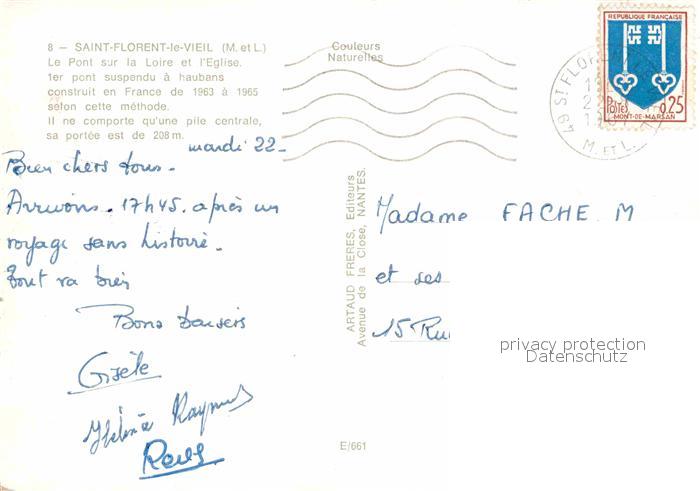 8 — SAINT-FLORENT-le-VIEIL (M. et L.)
Le Pont sur la Loire et l'Eglise.
1er pont suspendu à haubans
construit en France de 1963 à 1965
selon cette méthode.
Il ne comporte qu'une pile centrale,
sa portée est de 208 m.
Couleurs
Naturelles
REPUBLIQUE FRANÇAISE
POSTES 0,25
MONT-DE-MARSAN
49 ST FLORENT
M. ET L.
mardi 22_
Bien chers tous_
Arrivons. 17h45. après un
voyage sans histoire.
Tout va bien
Bons baisers
Gisèle
Raymond
ARTAUD FRERES, Editeurs
Avenue de la Close, NANTES.
Madame FACHE M
et ses
15 Ru
privacy protection
Datenschutz
E/661